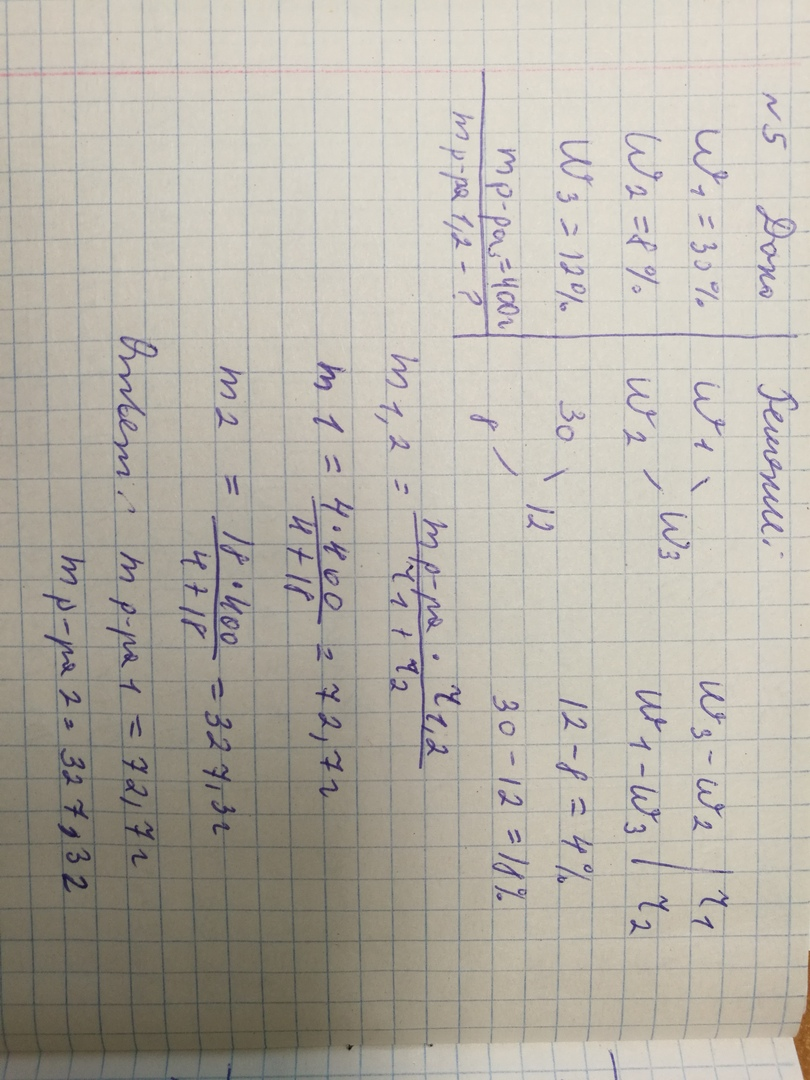 №5 Дано
W1 = 30%
W2 = 8%
W3 = 12%
m р-ра3 = 400г
m р-ра 1,2 - ?
Решение:
W1 \ W3 - W2 | r1
W3
W2 / W1 - W3 | r2
30 \ 12 - 8 = 4%
12
8 / 30 - 12 = 18%
m 1,2 = m р-ра · r1,2 / r1 + r2
m 1 = 4 · 400 / 4 + 18 = 72,7г
m 2 = 18 · 400 / 4 + 18 = 327,3г
Ответ: m р-ра 1 = 72,7г
m р-ра 2 = 327,3г